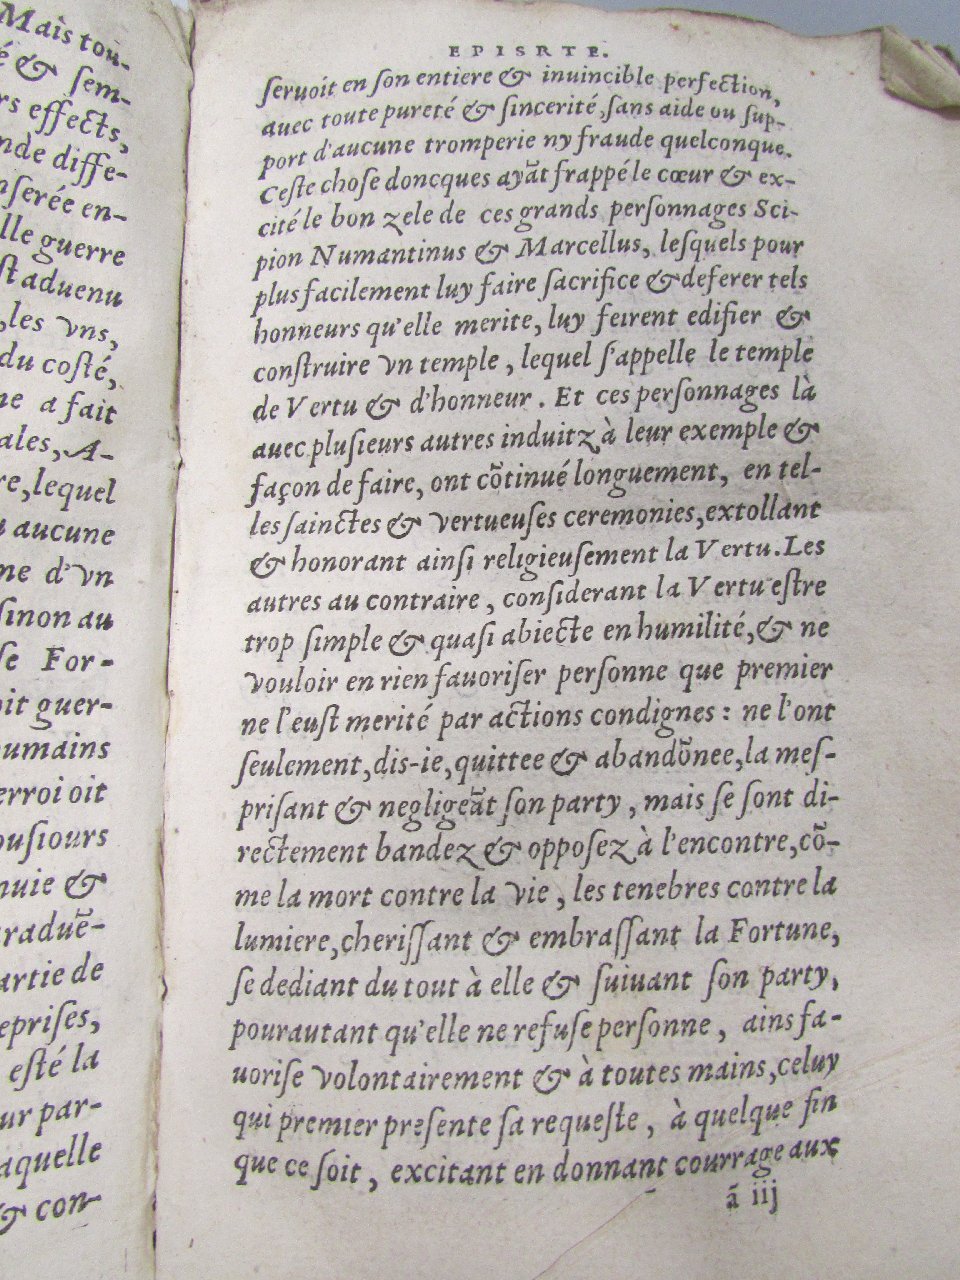 Mais tou-
é & sem-
rs effects,
nde diffe-
nserée en-
lle guerre
st aduenu
,les vns,
du costé,
ne a fait
ales, A-
re, lequel
u aucune
ne d'vn
sinon au
se For-
oit guer-
oumains
erroi oit
ousiours
nuie &
raduẽ-
artie de
eprises,
esté la
ur par-
aquelle
& con-
EPISRTE.
seruoit en son entiere & inuincible perfection,
auec toute pureté & sincerité, sans aide ou sup-
port d'aucune tromperie ny fraude quelconque.
Ceste chose doncques ayãt frappé le cœur & ex-
cité le bon zele de ces grands personnages Sci-
pion Numantinus & Marcellus, lesquels pour
plus facilement luy faire sacrifice & deferer tels
honneurs qu'elle merite, luy feirent edifier &
construire vn temple, lequel s'appelle le temple
de Vertu & d'honneur. Et ces personnages là
auec plusieurs autres induitz à leur exemple &
façon de faire, ont cõtinué longuement, en tel-
les sainctes & vertueuses ceremonies, extollant
& honorant ainsi religieusement la Vertu. Les
autres au contraire, considerant la Vertu estre
trop simple & quasi abiecte en humilité, & ne
vouloir en rien fauoriser personne que premier
ne l'eust merité par actions condignes: ne l'ont
seulement, dis-ie, quittee & abandõnee, la mes-
prisant & negligeãt son party, mais se sont di-
rectement bandez & opposez à l'encontre, cõ-
me la mort contre la vie, les tenebres contre la
lumiere, cherissant & embrassant la Fortune,
se dediant du tout à elle & suiuant son party,
pourautant qu'elle ne refuse personne, ains fa-
uorise volontairement & à toutes mains, celuy
qui premier presente sa requeste, à quelque fin
que ce soit, excitant en donnant courrage aux
ã iij